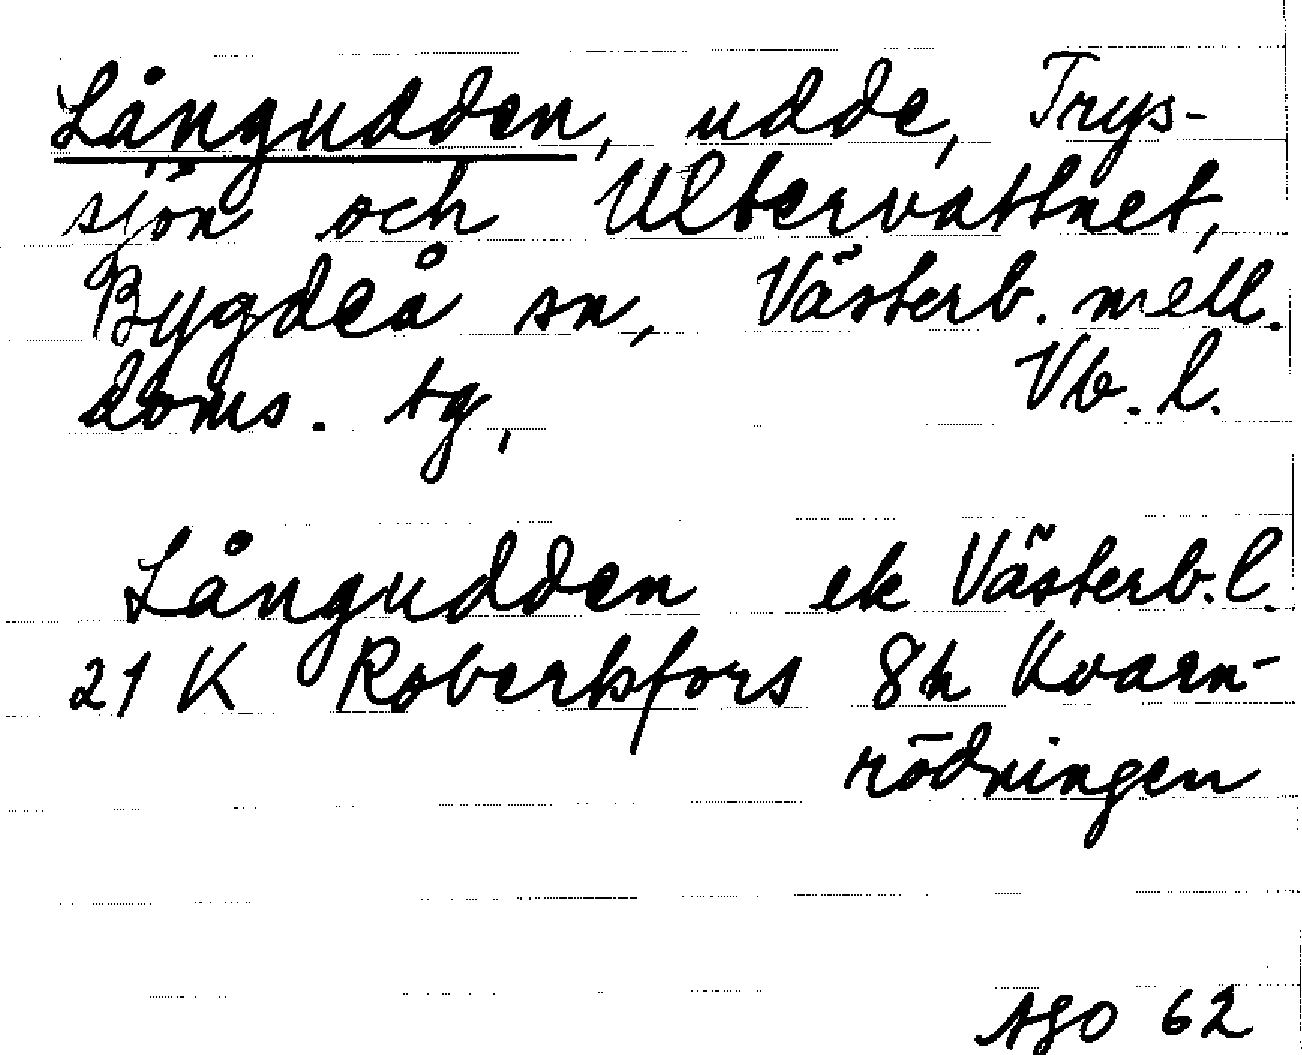 Långudden, udde, Trys-
sjön och Ultervattnet,
Bygdeå sn, Västerb. mell.
doms. tg, Vb. l.
Långudden ek Västerb. l.
21 K Robertsfors 8h Kvarn-
rödningen
ÅGO 62